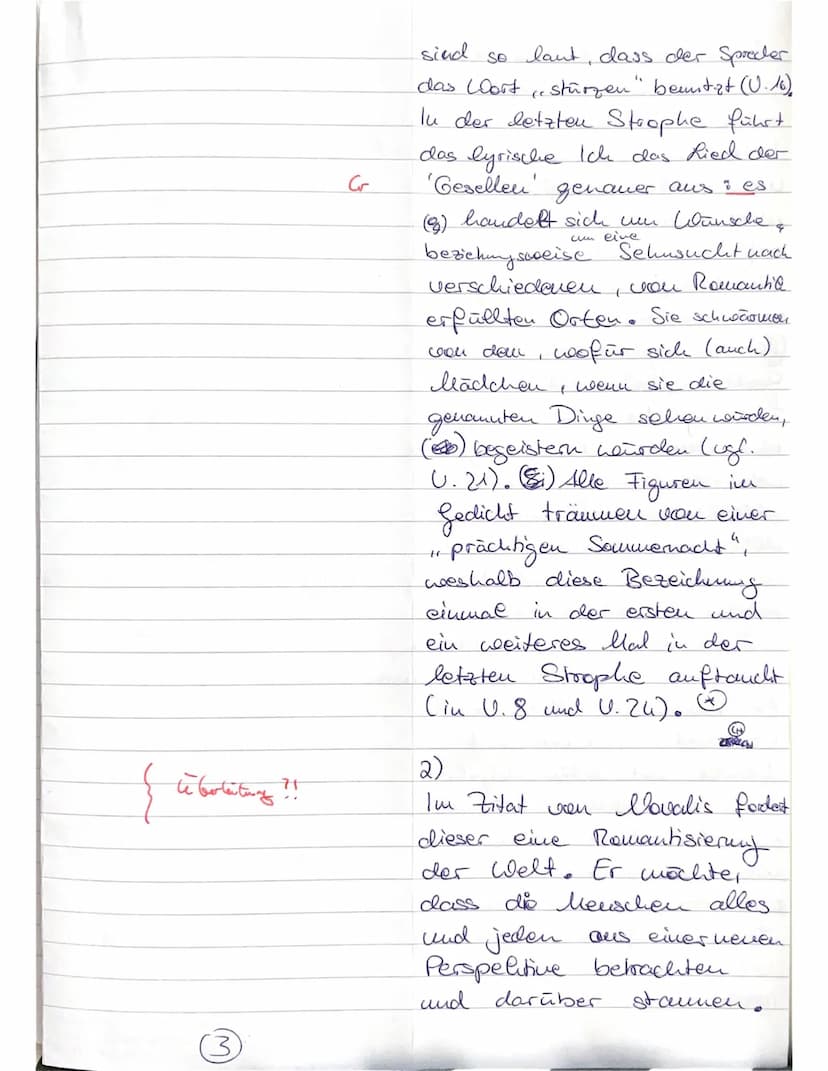 sind so laut, dass der Sprecher
das Wort „stürzen" benutzt (V. 16).
In der letzten Strophe führt
das lyrische Ich das Lied der
Gr 'Gesellen' genauer aus: es
(g) handelt sich um Wünsche,
um eine
beziehungsweise Sehnsucht nach
verschiedenen, von Romantik
erfüllten Orten. Sie schwärmen
von dem, wofür sich (auch)
Mädchen, wenn sie die
genannten Dinge sehen würden,
begeistern würden (vgl.
V. 21). Alle Figuren im
Gedicht träumen von einer
„prächtigen Sommernacht",
weshalb diese Bezeichnung
einmal in der ersten und
ein weiteres Mal in der
letzten Strophe auftaucht
(in V. 8 und V. 24). (*)
2)
Überleitung ?!
Im Zitat von Novalis fordert
dieser eine Romantisierung
der Welt. Er möchte,
dass die Menschen alles
und jeden aus einer neuen
Perspektive betrachten
und darüber staunen.
3